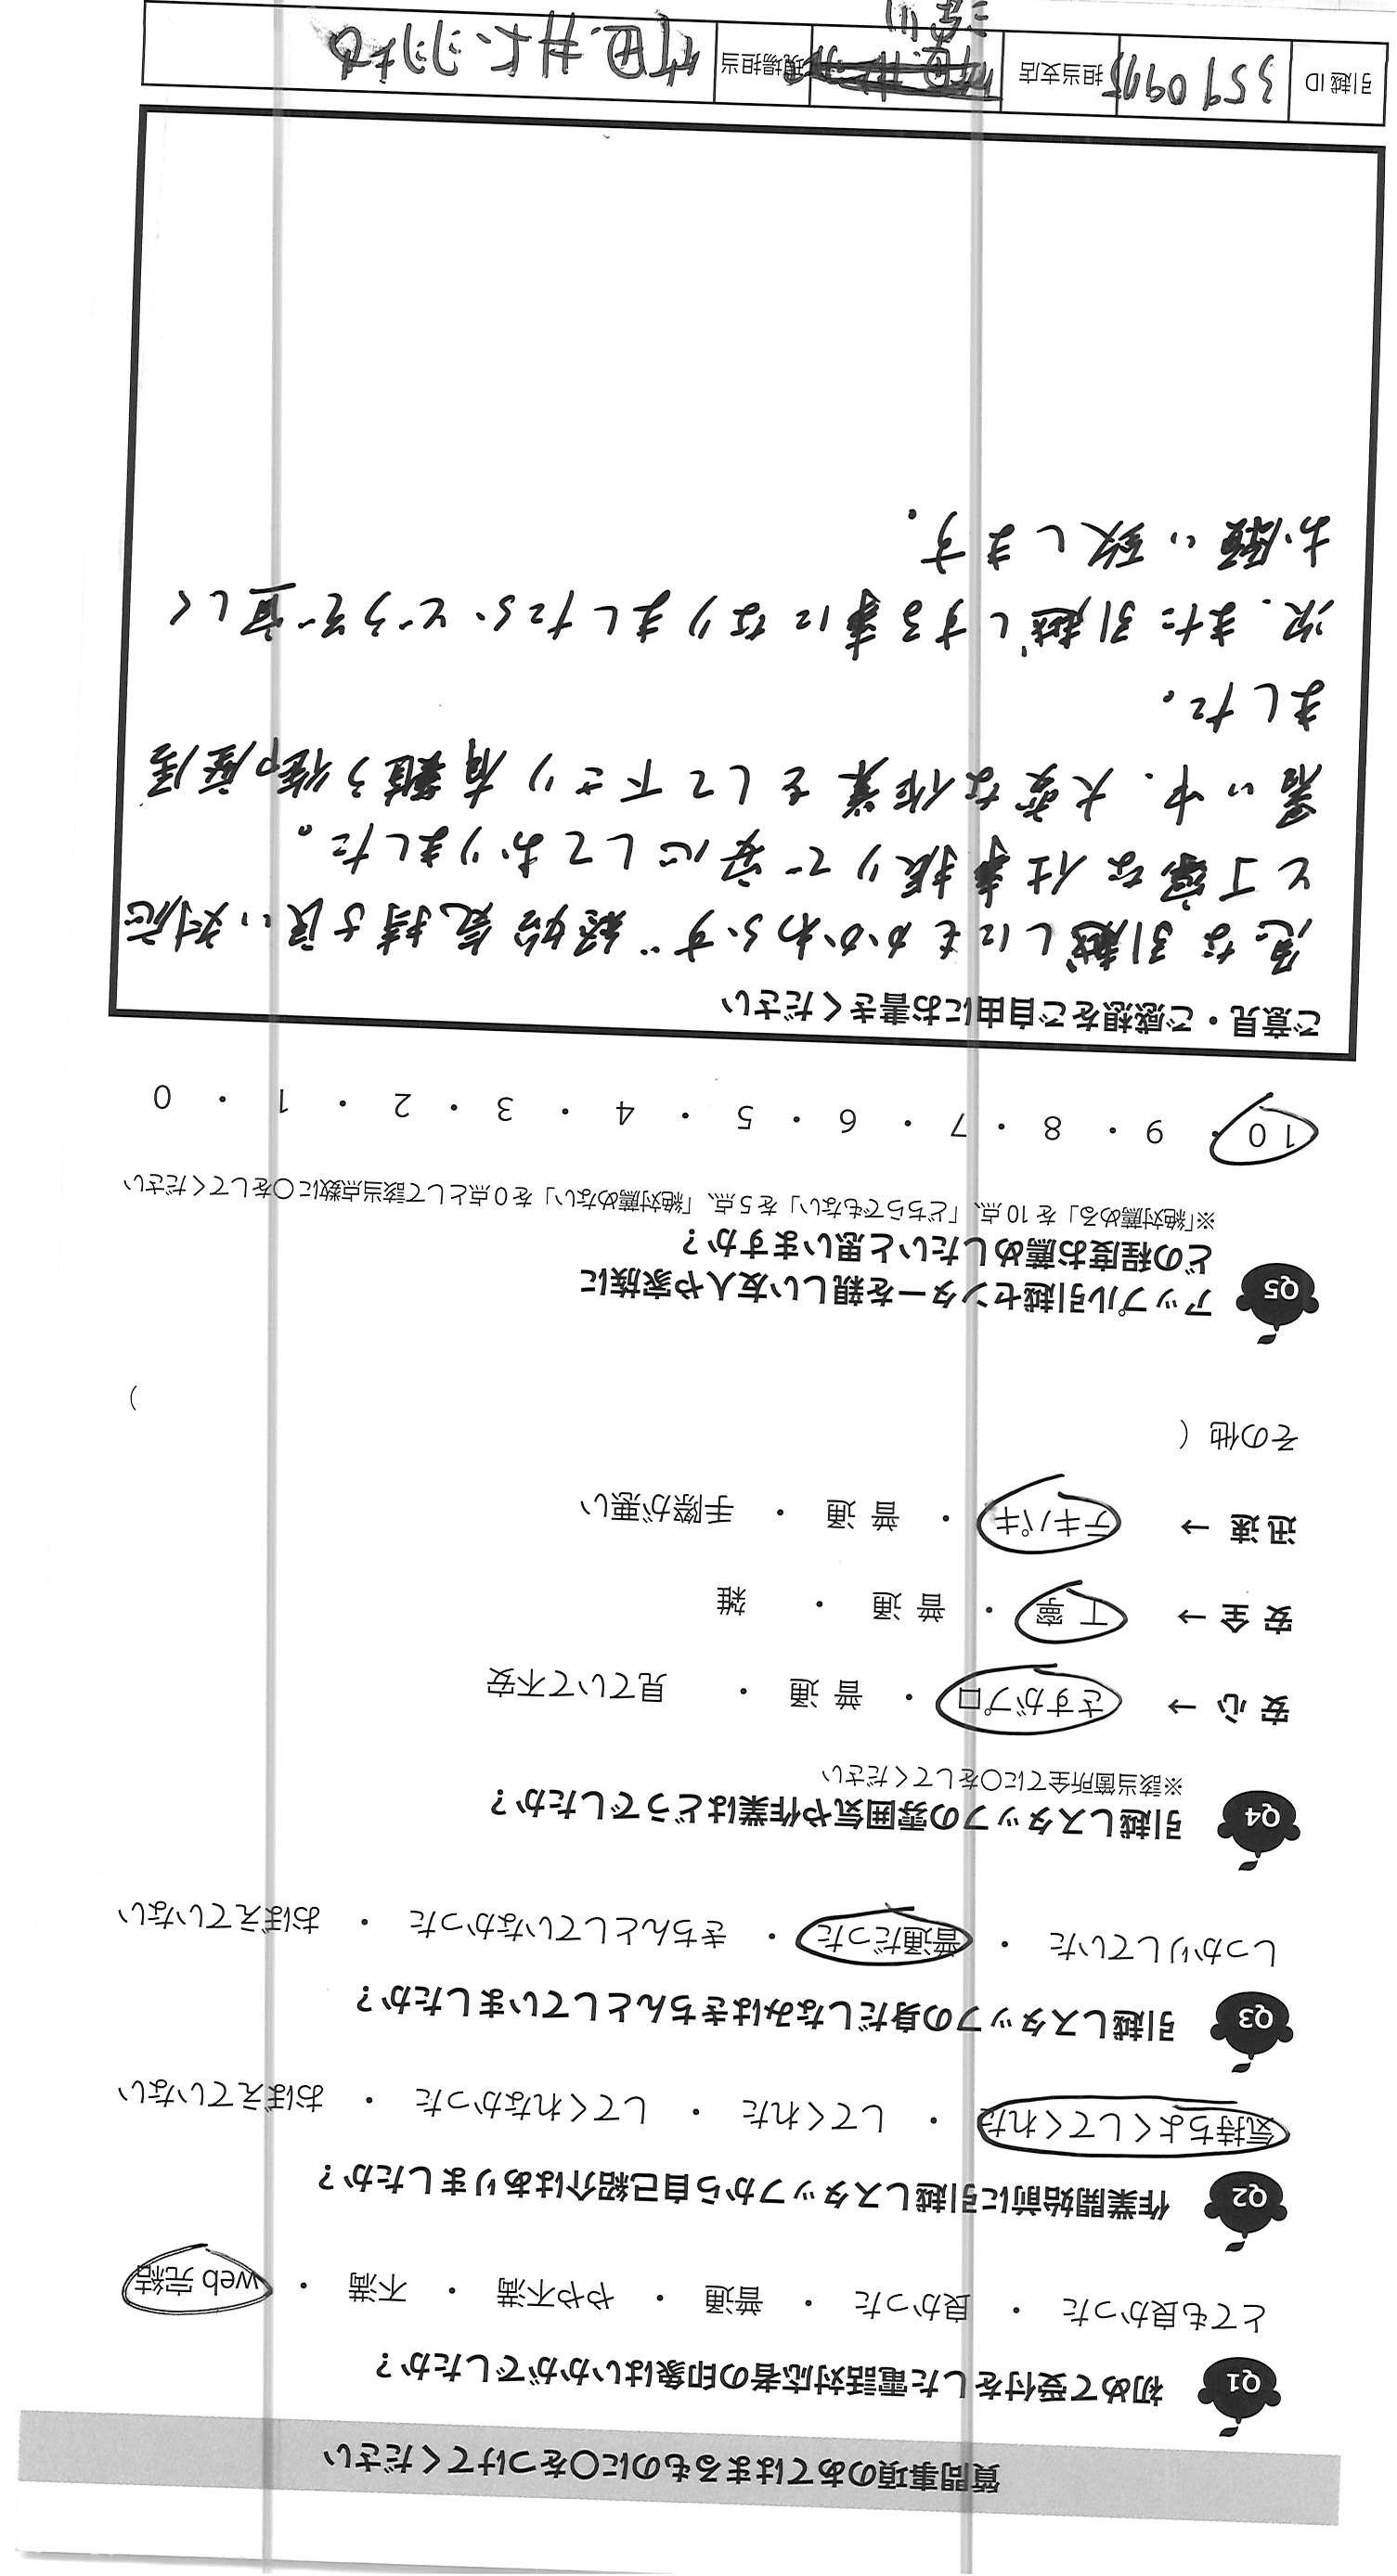 質問事項のあてはまるものに〇をつけてください
Q1 初めて受付をした電話対応者の印象はいかがでしたか？
とても良かった ・ 良かった ・ 普通 ・ やや不満 ・ 不満 ・ web 完結
Q2 作業開始前に引越しスタッフから自己紹介はありましたか？
気持ちよくしてくれた ・ してくれた ・ してくれなかった ・ おぼえていない
Q3 引越しスタッフの身だしなみはきちんとしていましたか？
しっかりしていた ・ 普通だった ・ きちんとしていなかった ・ おぼえていない
Q4 引越しスタッフの雰囲気や作業はどうでしたか？
※該当箇所全てに〇をしてください
安 心 → さすがプロ ・ 普 通 ・ 見ていて不安
安 全 → 丁 寧 ・ 普 通 ・ 雑
迅 速 → テキパキ ・ 普 通 ・ 手際が悪い
その他（ ）
Q5 アップル引越センターを親しい友人や家族に
どの程度お薦めしたいと思いますか？
※「絶対薦める」を 10 点、「どちらでもない」を 5 点、「絶対薦めない」を 0 点として該当点数に〇をしてください
10 ・ 9 ・ 8 ・ 7 ・ 6 ・ 5 ・ 4 ・ 3 ・ 2 ・ 1 ・ 0
ご意見・ご感想をご自由にお書きください
急な引越しにもかかわらず、終始気持ち良い対応
と丁寧な仕事振りで安心しておりました。
暑い中、大変な作業をして下さり有難う御座居
ました。
次、また引越しする事になりましたらどうぞ宜しく
お願い致します。
引越 ID 3590975 担当支店 現場担当 竹田、井上、